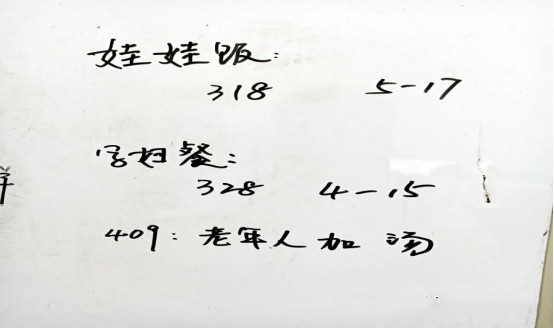 娃娃饭:
318 5-17
孕妇餐:
328 4-15
409: 老年人加汤